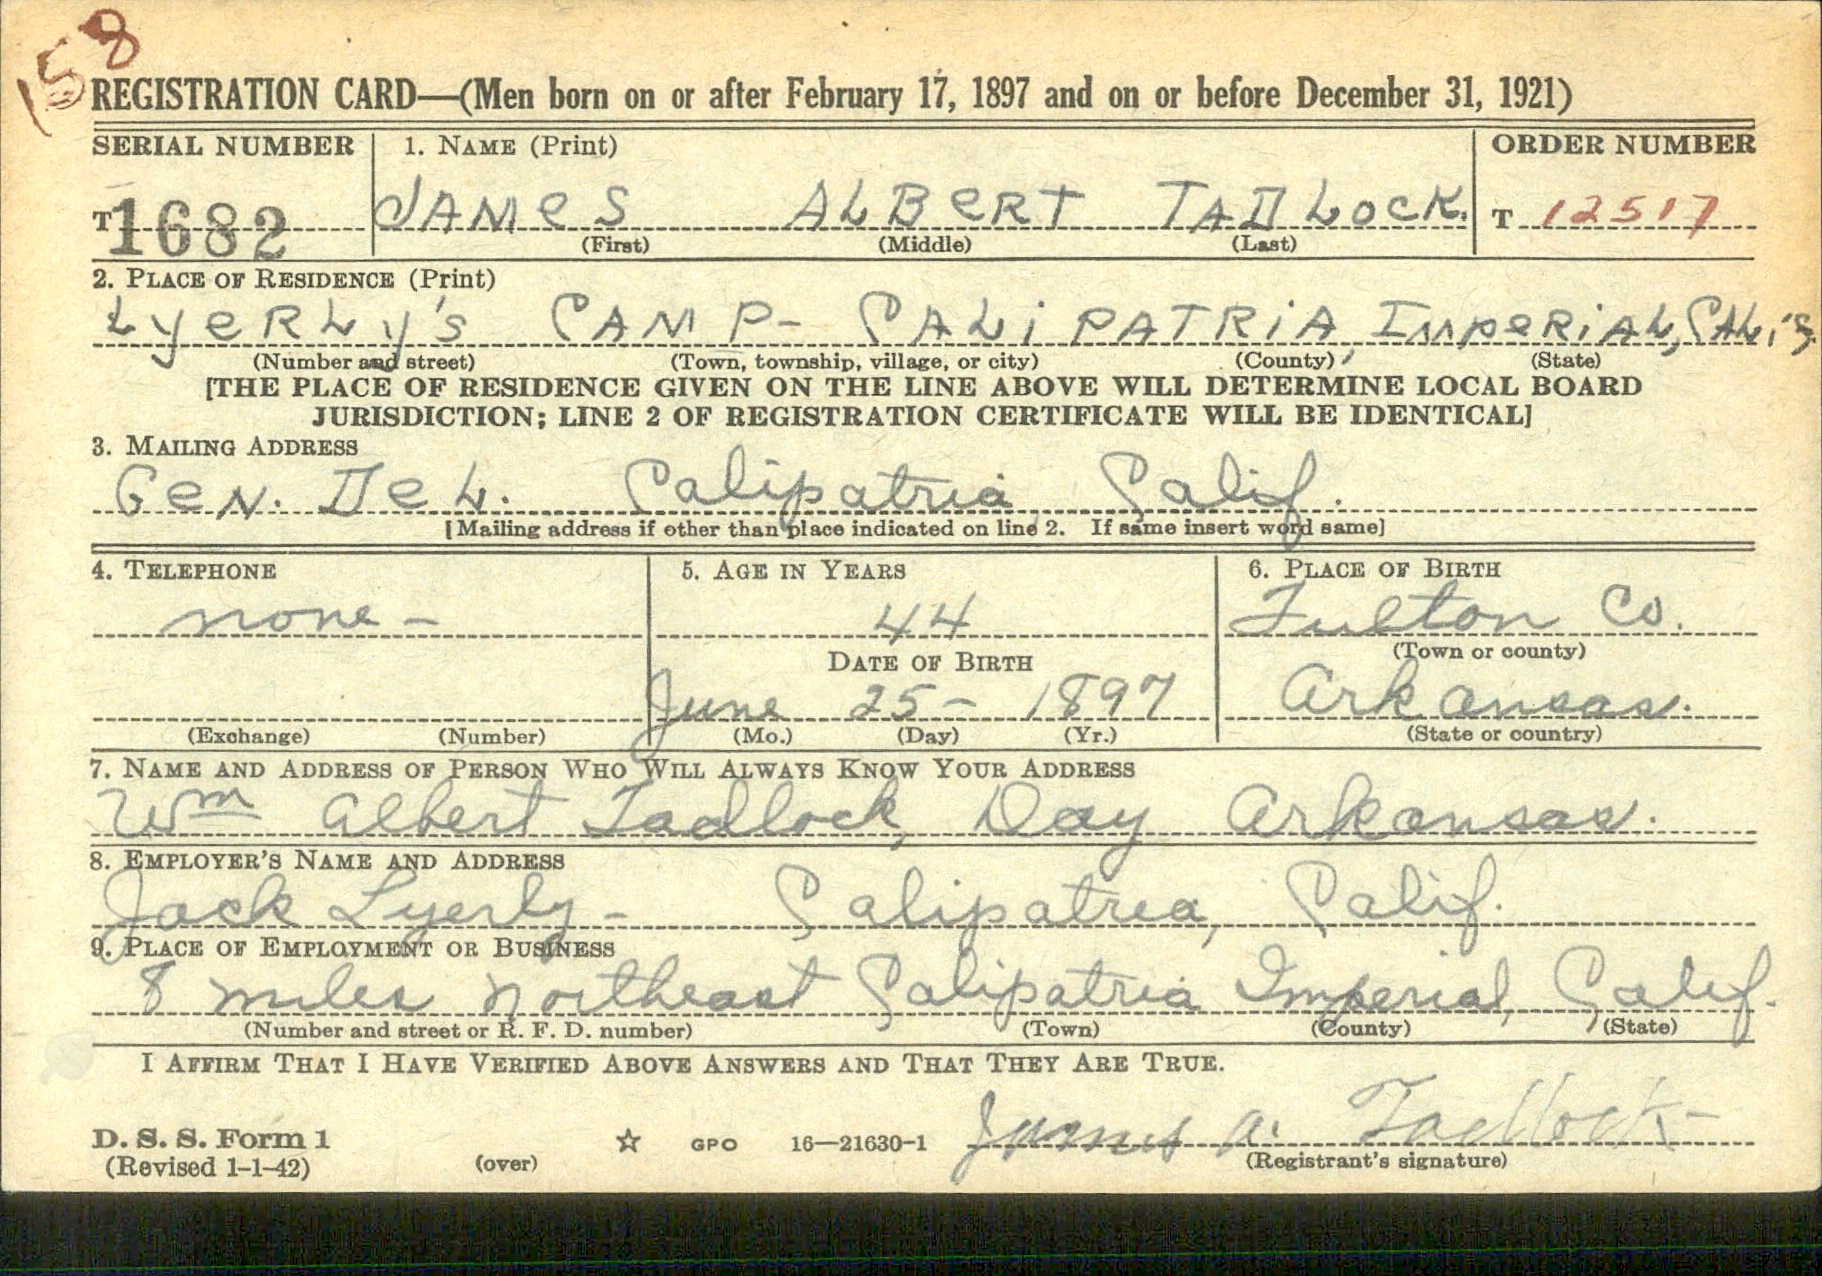 158
REGISTRATION CARD—(Men born on or after February 17, 1897 and on or before December 31, 1921)
SERIAL NUMBER 1. NAME (Print) ORDER NUMBER
T 1682 JAMes ALBeRT TADLOCK. T 12517
(First) (Middle) (Last)
2. PLACE OF RESIDENCE (Print)
LyeRLy's CAMP- CALiPATRiA, IMPeRiAL, CALif.
(Number and street) (Town, township, village, or city) (County) (State)
[THE PLACE OF RESIDENCE GIVEN ON THE LINE ABOVE WILL DETERMINE LOCAL BOARD
JURISDICTION; LINE 2 OF REGISTRATION CERTIFICATE WILL BE IDENTICAL]
3. MAILING ADDRESS
GeN. DeL. Calipatria Calif.
[Mailing address if other than place indicated on line 2. If same insert word same]
4. TELEPHONE 5. AGE IN YEARS 6. PLACE OF BIRTH
none - 44 Fulton Co.
(Town or county)
DATE OF BIRTH
June 25- 1897 Arkansas.
(Exchange) (Number) (Mo.) (Day) (Yr.) (State or country)
7. NAME AND ADDRESS OF PERSON WHO WILL ALWAYS KNOW YOUR ADDRESS
Wm Albert Tadlock, Day Arkansas.
8. EMPLOYER'S NAME AND ADDRESS
Jack Lyerly - Calipatria, Calif.
9. PLACE OF EMPLOYMENT OR BUSINESS
8 miles northeast Calipatria Imperial, Calif.
(Number and street or R. F. D. number) (Town) (County) (State)
I AFFIRM THAT I HAVE VERIFIED ABOVE ANSWERS AND THAT THEY ARE TRUE.
James A. Tadlock
D. S. S. Form 1 ☆ GPO 16—21630-1
(Revised 1-1-42) (over) (Registrant's signature)